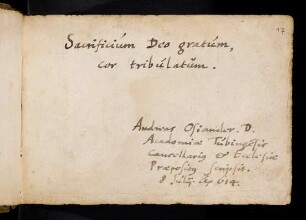 17
Sacrificium Deo gratum,
cor tribulatum.
Andreas Osiander. D.
Academiæ Tubingēsis
Cancellarius & Ecclesiæ
Præpositꝰ scripsit.
8 Julij. Aº 614.